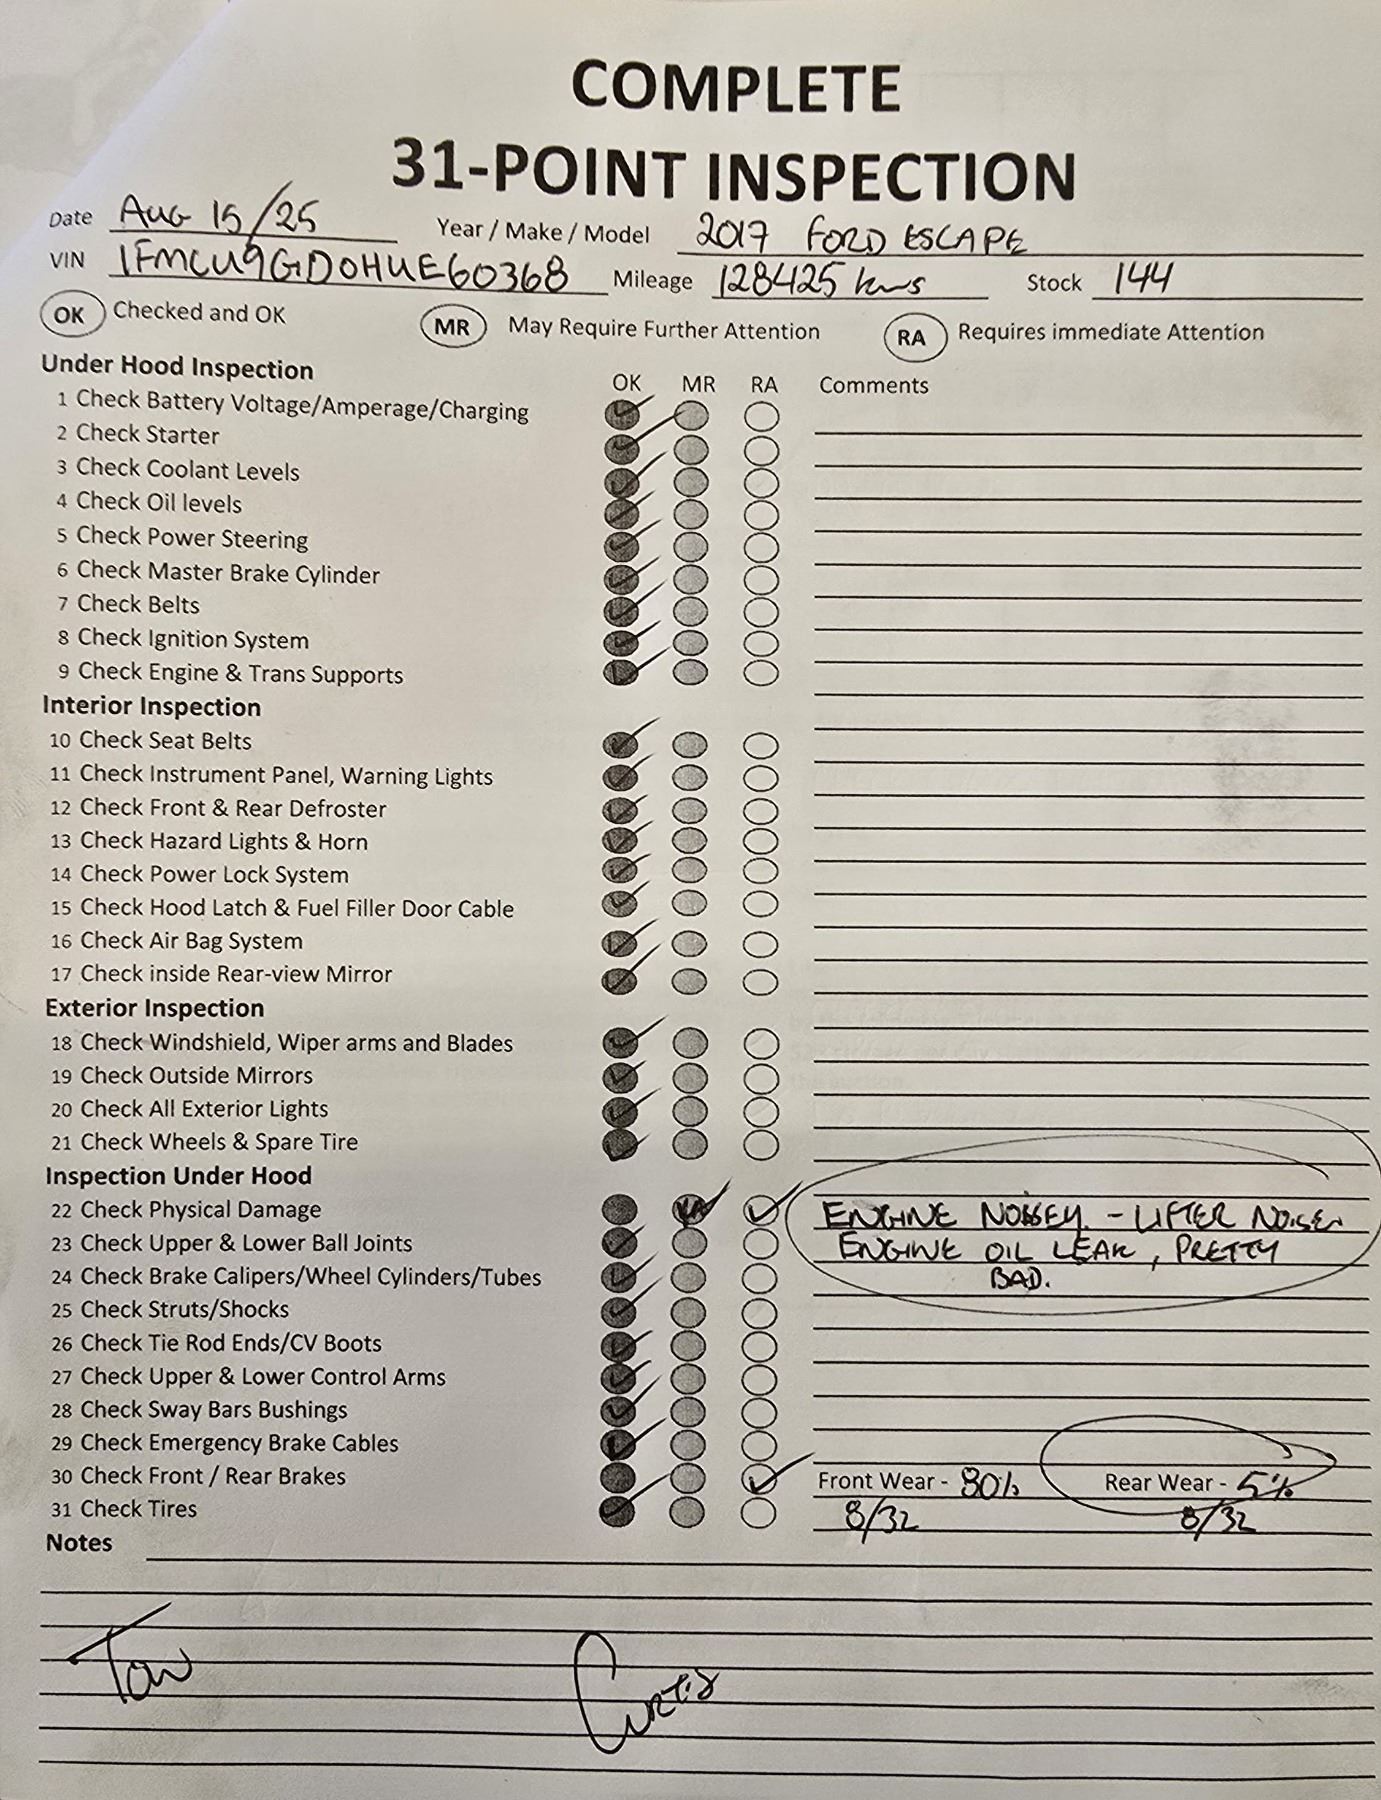 COMPLETE
31-POINT INSPECTION
Date AUG 15/25 Year / Make / Model 2017 FORD ESCAPE
VIN 1FMCU9GD0HUE60368 Mileage 128425 kms Stock 144
OK Checked and OK MR May Require Further Attention RA Requires immediate Attention
Under Hood Inspection
OK MR RA Comments
1 Check Battery Voltage/Amperage/Charging
2 Check Starter
3 Check Coolant Levels
4 Check Oil levels
5 Check Power Steering
6 Check Master Brake Cylinder
7 Check Belts
8 Check Ignition System
9 Check Engine & Trans Supports
Interior Inspection
10 Check Seat Belts
11 Check Instrument Panel, Warning Lights
12 Check Front & Rear Defroster
13 Check Hazard Lights & Horn
14 Check Power Lock System
15 Check Hood Latch & Fuel Filler Door Cable
16 Check Air Bag System
17 Check inside Rear-view Mirror
Exterior Inspection
18 Check Windshield, Wiper arms and Blades
19 Check Outside Mirrors
20 Check All Exterior Lights
21 Check Wheels & Spare Tire
Inspection Under Hood
22 Check Physical Damage ENGINE NOISEY. - LIFTER NOISE.
23 Check Upper & Lower Ball Joints ENGINE OIL LEAK, PRETTY
24 Check Brake Calipers/Wheel Cylinders/Tubes BAD.
25 Check Struts/Shocks
26 Check Tie Rod Ends/CV Boots
27 Check Upper & Lower Control Arms
28 Check Sway Bars Bushings
29 Check Emergency Brake Cables
30 Check Front / Rear Brakes Front Wear - 80% Rear Wear - 5%
31 Check Tires 8/32 8/32
Notes
Curtis